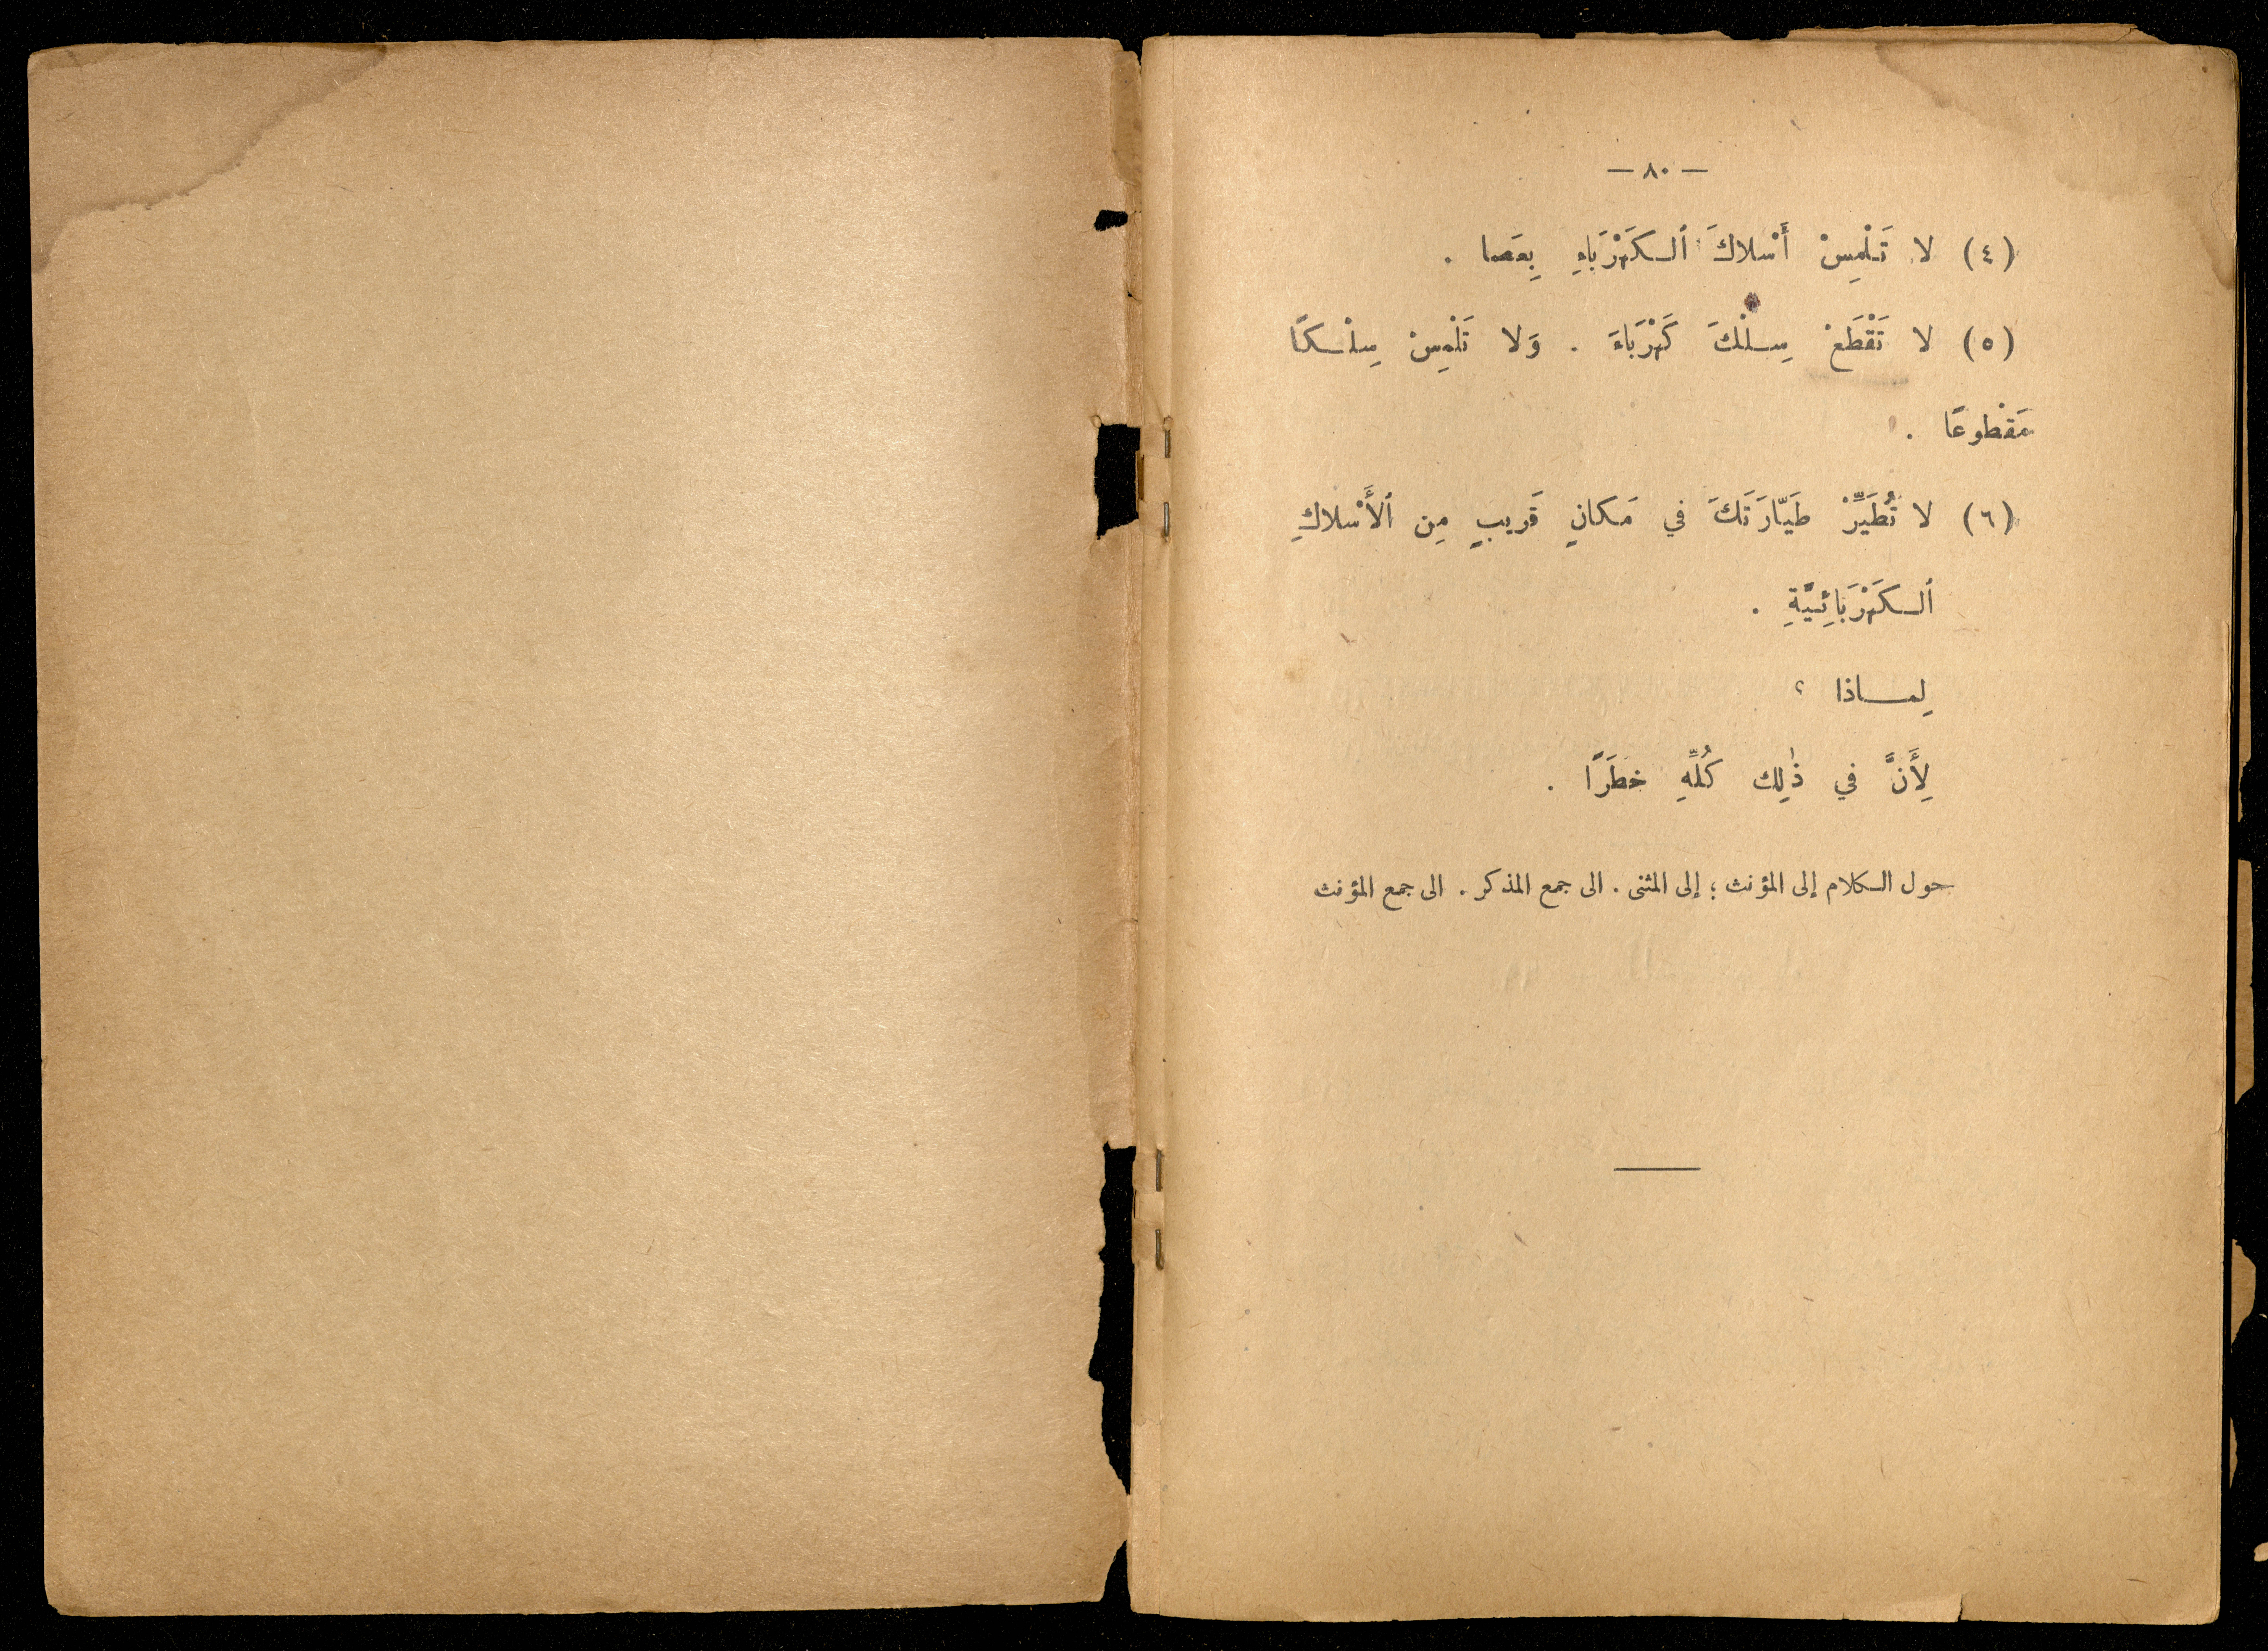 — ٨٠ —
(٤) لا تَلْمِسْ أَسْلاكَ ٱلكَهْرَبَاءِ بِعَصا .
(٥) لا تَقْطَعْ سِلْكَ كَهْرَبَاءَ . وَلا تَلْمِسْ سِلْكًا
مَقْطوعًا .
(٦) لا تُطَيِّرْ طَيّارَتَكَ في مَكانٍ قَريبٍ مِن ٱلأَسْلاكِ
ٱلكَهْرَبَائِيَّةِ .
لِماذا ؟
لِأَنَّ في ذٰلِك كُلِّهِ خطَرًا .
حول الكلام إلى المؤنث ؛ إلى المثنى . الى جمع المذكر . الى جمع المؤنث